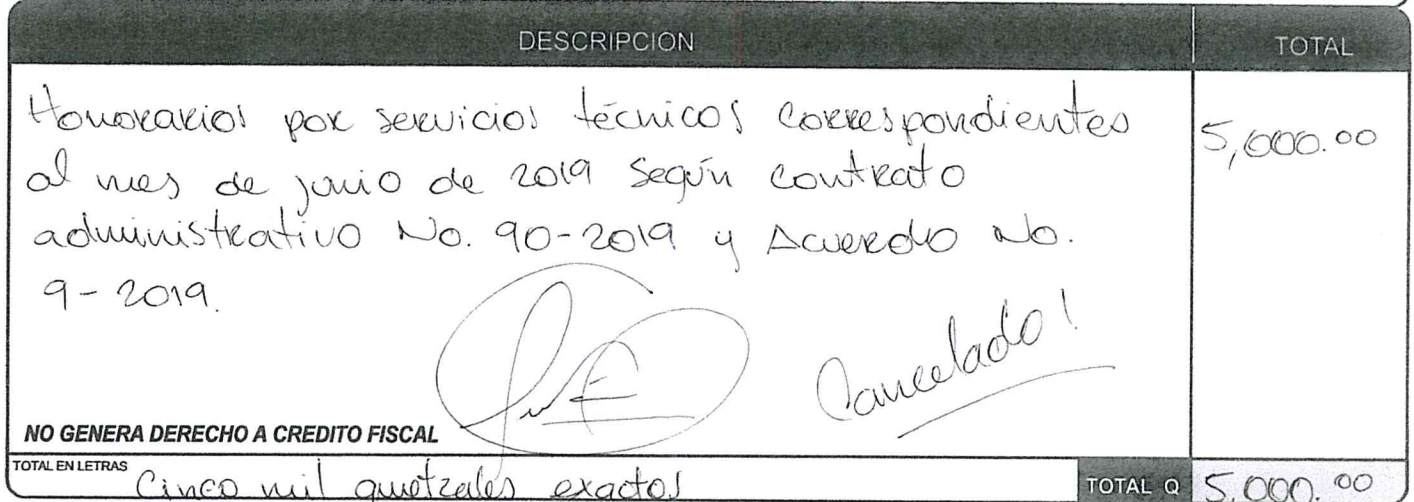 DESCRIPCION TOTAL
Honorarios por servicios técnicos correspondientes 5,000.00
al mes de junio de 2019 Según contrato
administrativo No. 90-2019 y Acuerdo No.
9-2019.
Cancelado!
NO GENERA DERECHO A CREDITO FISCAL
TOTAL EN LETRAS Cinco mil quetzales exactos TOTAL Q 5,000.00